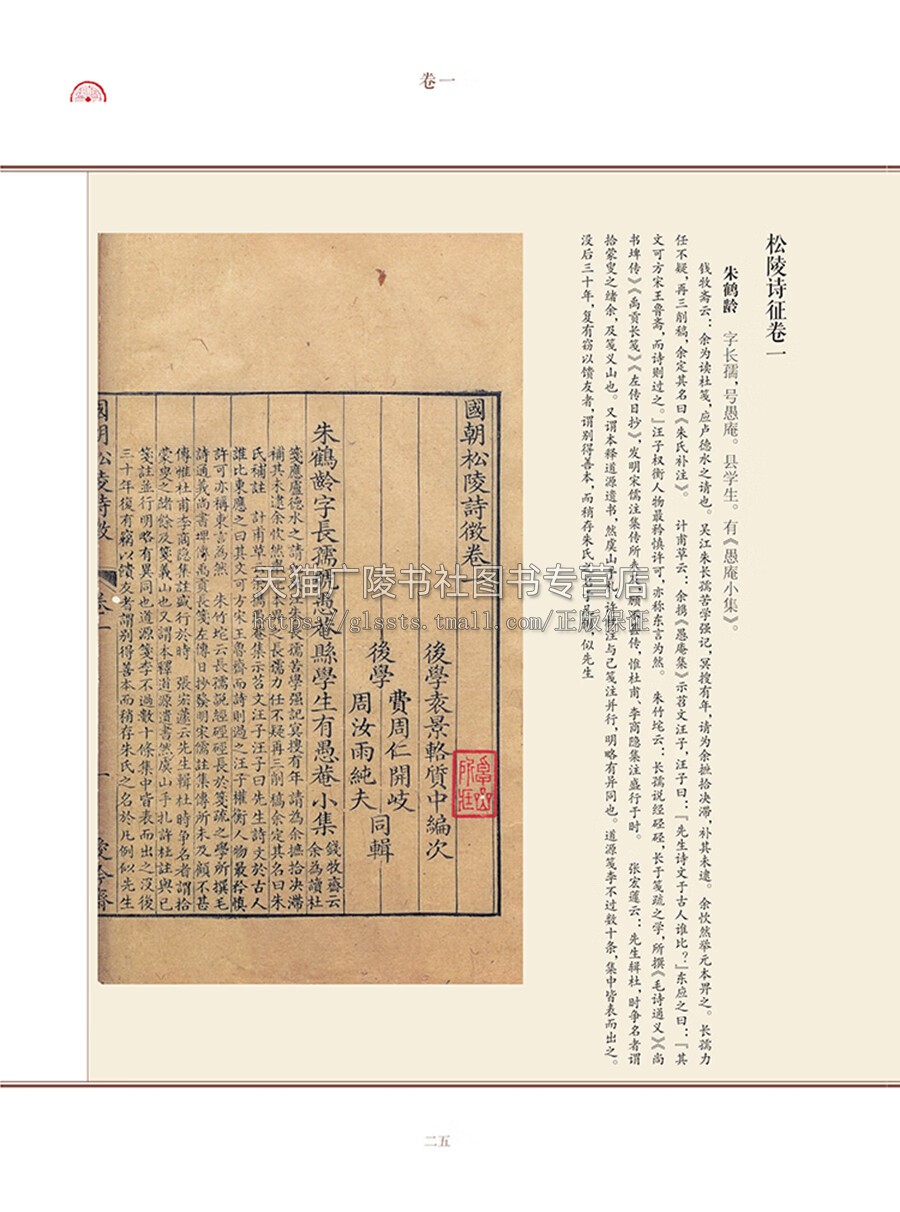 卷一
松陵诗征卷一
朱鹤龄　字长孺，号愚庵。县学生。有《愚庵小集》。
钱牧斋云：余为读杜笺，应卢德水之请也。吴江朱长孺苦学强记，冥搜有年，请为余摭拾决滞，补其未逮。余忻然举元本畀之。长孺力
任不疑，再三削稿，余定其名曰《朱氏补注》。　计甫草云：余携《愚庵集》示苕文汪子，汪子曰：「先生诗文于古人谁比？」东应之曰：「其
文可方宋王鲁斋，而诗则过之。」汪子权衡人物最矜慎许可，亦称东言为然。　朱竹垞云：长孺说经硁硁，长于笺疏之学，所撰《毛诗通义》《尚
书埤传》《禹贡长笺》《左传日抄》，发明宋儒注集传所未及，顾不甚传，惟杜甫、李商隐集注盛行于时。　张宏蘧云：先生辑杜，时争名者谓
拾蒙叟之绪余，及笺义山也。又谓本释道源遗书，然虞山手札，许杜注与己笺注并行，明略有异同也。道源笺李不过数十条，集中皆表而出之。
没后三十年，复有窃以馈友者，谓别得善本，而稍存朱氏之名于凡例，似先生
國朝松陵詩徵卷一
後學袁景輅質中編次
費周仁開岐
後學　同輯
周汝雨純夫
朱鶴齡字長孺號愚菴縣學生有愚菴小集
錢牧齋云余為讀杜
箋應盧德水之請也吳江朱長孺苦學强記冥搜有年請為余摭拾决滯
補其未逮余忻然舉元本畀之長孺力任不疑再三削稿余定其名曰朱
氏補註　計甫草云余攜愚菴集示苕文汪子汪子曰先生詩文於古人
誰比東應之曰其文可方宋王魯齋而詩則過之汪子權衡人物最矜慎
許可亦稱東言為然　朱竹垞云長孺說經硜硜長於箋疏之學所撰毛
詩通義尚書埤傳禹貢長箋左傳日抄發明宋儒註集傳所未及顧不甚
傳惟杜甫李商隱集註盛行於時　張宏蘧云先生輯杜時爭名者謂拾
蒙叟之緒餘及箋義山也又謂本釋道源遺書然虞山手札許杜註與已
箋註並行明略有異同也道源箋李不過數十條集中皆表而出之沒後
三十年復有竊以饋友者謂別得善本而稍存朱氏之名於凡例似先生
國朝松陵詩徵
卷一
一
天猫广陵书社图书专营店
https://glssts.tmall.com/正版保证
二五